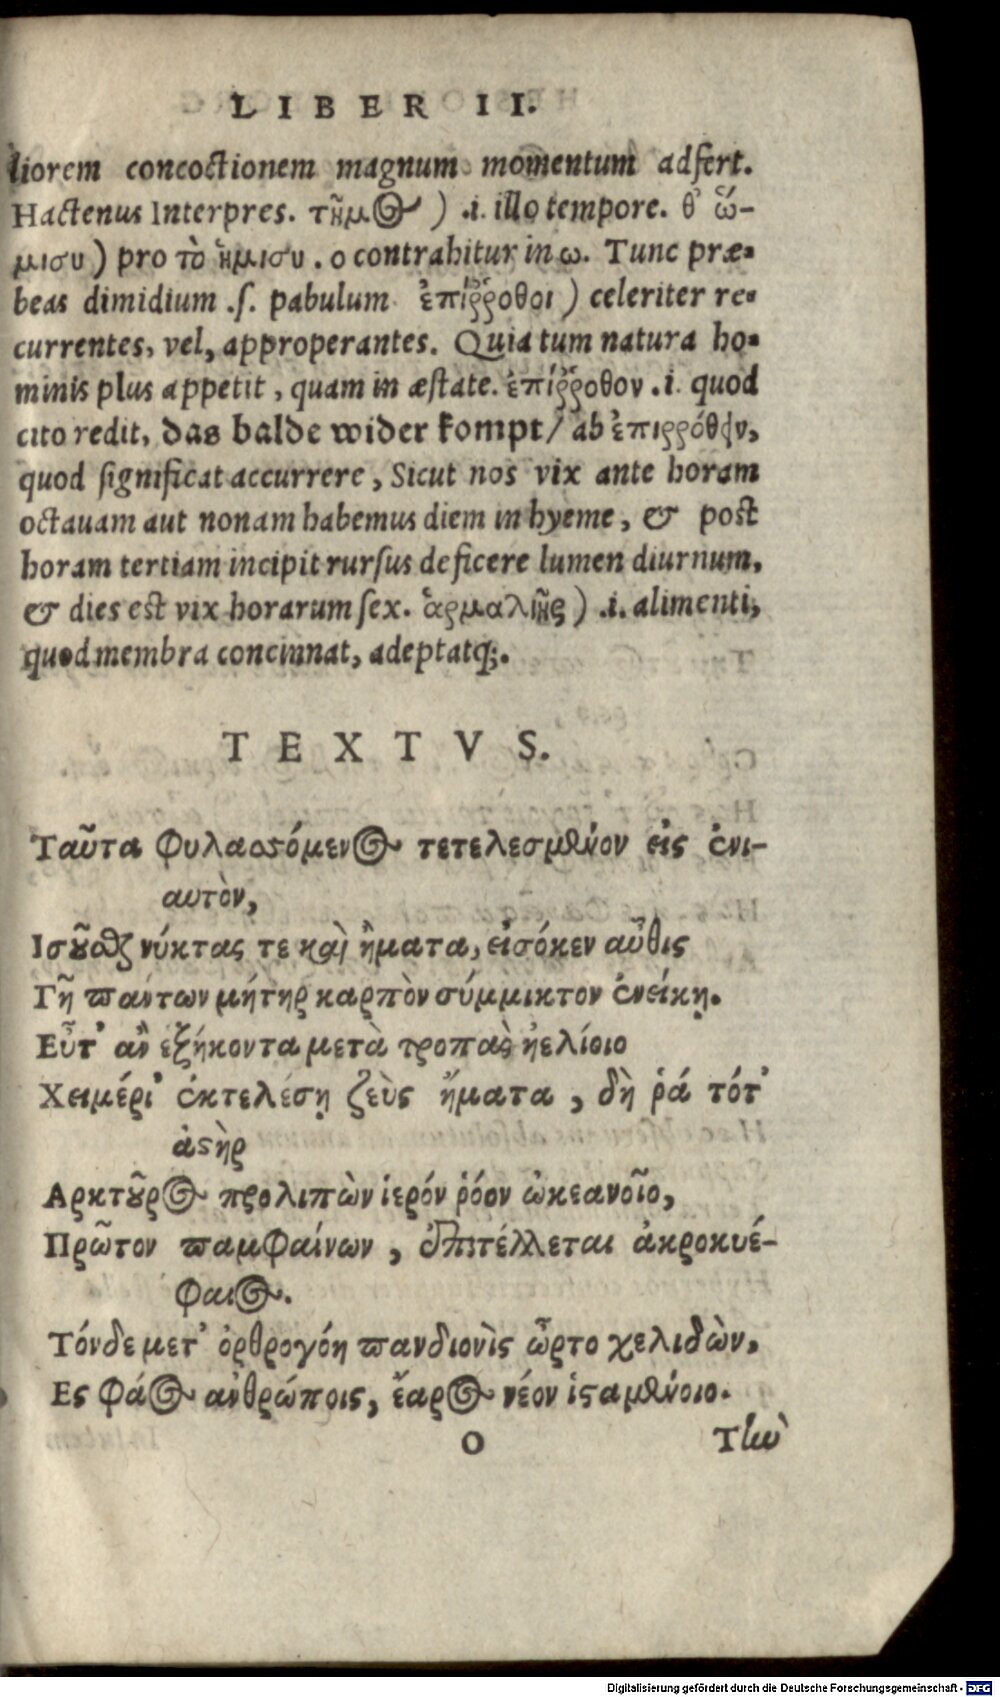 LIBER II.
liorem concoctionem magnum momentum adfert.
Hactenus Interpres. τῆμος) .i. illo tempore. θ' ὥ-
μισυ) pro τὸ ἥμισυ. o contrahitur in ω. Tunc præ-
beas dimidium .ſ. pabulum ἐπίῤῥοθοι) celeriter re-
currentes, vel, approperantes. Quia tum natura ho-
minis plus appetit, quam in æſtate. ἐπίῤῥοθον .i. quod
cito redit, das balde wider kompt/ ab ἐπιῤῥόθειν,
quod ſignificat accurrere, Sicut nos vix ante horam
octauam aut nonam habemus diem in hyeme, & post
horam tertiam incipit rurſus deficere lumen diurnum,
& dies est vix horarum ſex. ἁρμαλιῆς) .i. alimenti,
quod membra concinnat, adeptatq;.
TEXTVS.
Ταῦτα φυλασσόμενος τετελεσμένον εἰς ἐνι-
αυτὸν,
Ισοῦσθαι νύκτας τε καὶ ἤματα, εἰσόκεν αὖθις
Γῆ πάντων μήτηρ καρπὸν σύμμικτον ἐνείκῃ.
Εὖτ' ἂν ἑξήκοντα μετὰ τροπὰς ἠελίοιο
Χειμέρι' ἐκτελέσῃ ζεὺς ἤματα, δὴ ῥά τότ'
ἀστὴρ
Αρκτοῦρος προλιπὼν ἱερόν ῥόον ὠκεανοῖο,
Πρῶτον παμφαίνων, ἐπιτέλλεται ἀκροκνέ-
φαιος.
Τόνδε μετ' ὀρθρογόη πανδιονὶς ὦρτο χελιδὼν,
Ες φάος ἀνθρώποις, ἔαρος νέον ἱσταμένοιο.
O Τὴν
Digitalisierung gefördert durch die Deutsche Forschungsgemeinschaft - DFG